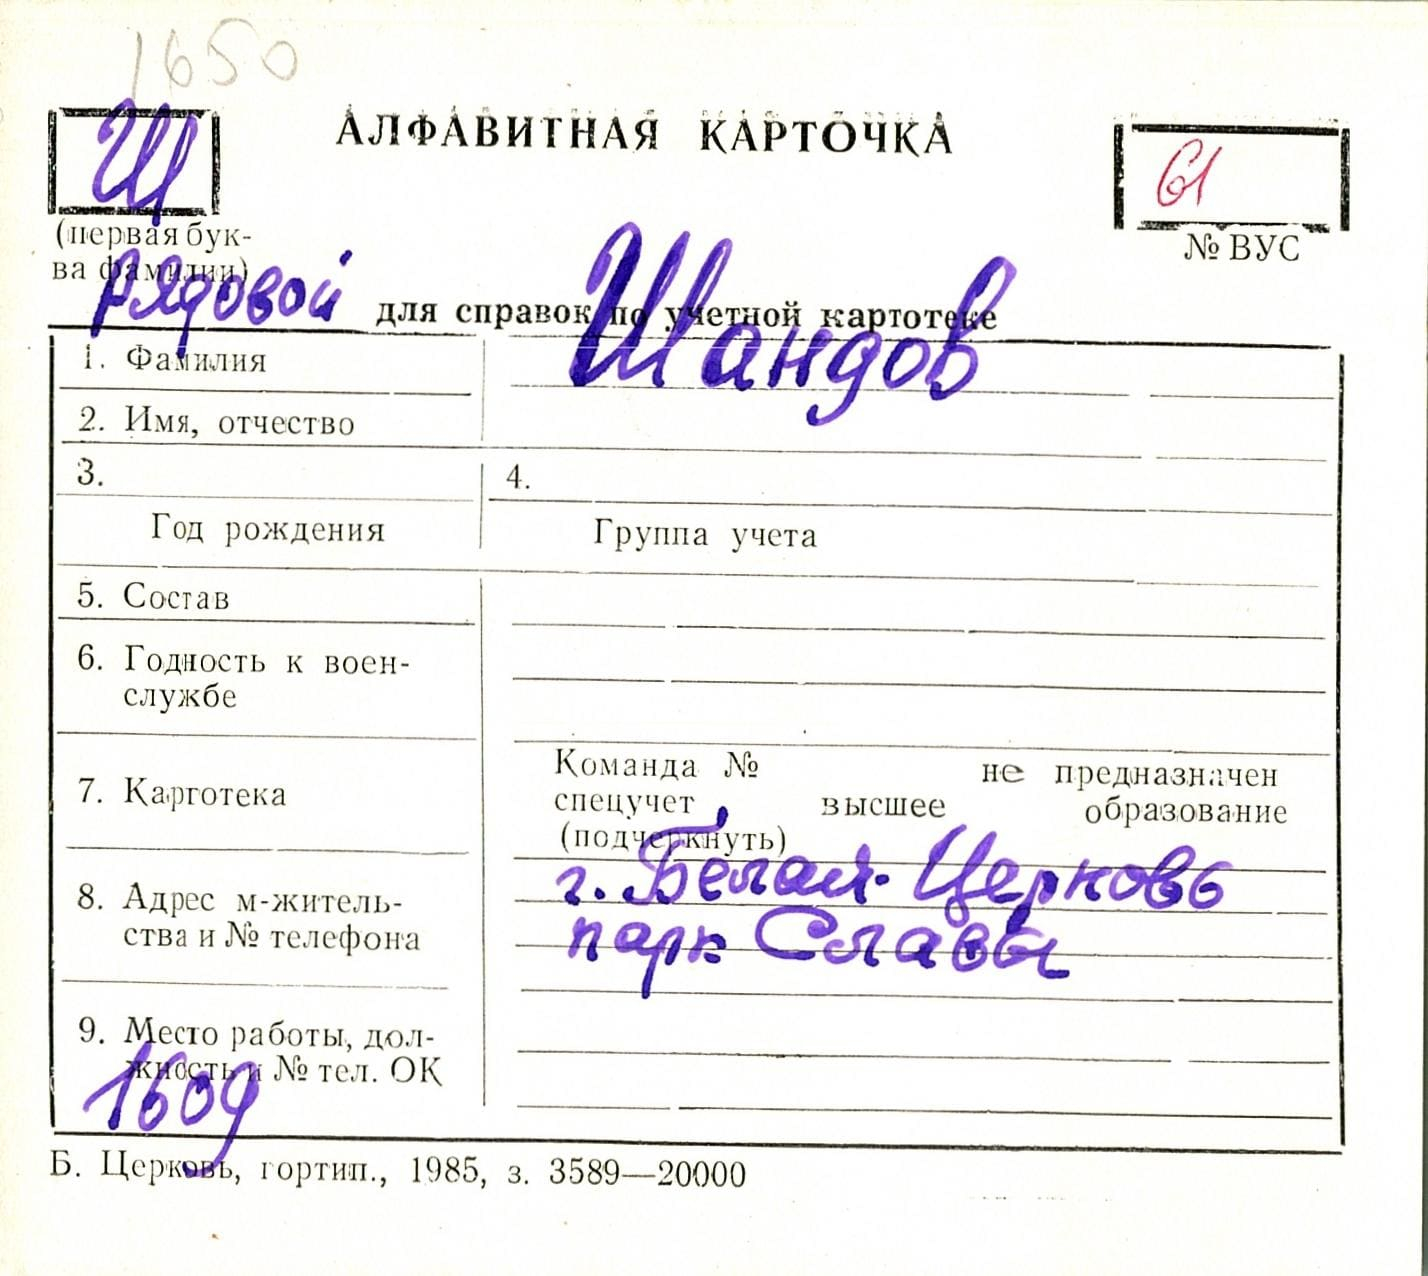 1650
Щ
АЛФАВИТНАЯ КАРТОЧКА
61
(первая бук-
ва фамилии)
№ ВУС
рядовой
для справок по учетной картотеке
1. Фамилия
Шандов
2. Имя, отчество
3.
4.
Год рождения
Группа учета
5. Состав
6. Годность к воен-
службе
7. Картотека
Команда № не предназначен
спецучет высшее образование
(подчеркнуть)
8. Адрес м-житель-
ства и № телефона
г. Белая-Церковь
парк Славы
9. Место работы, дол-
жность и № тел. ОК
1609
Б. Церковь, гортип., 1985, з. 3589—20000